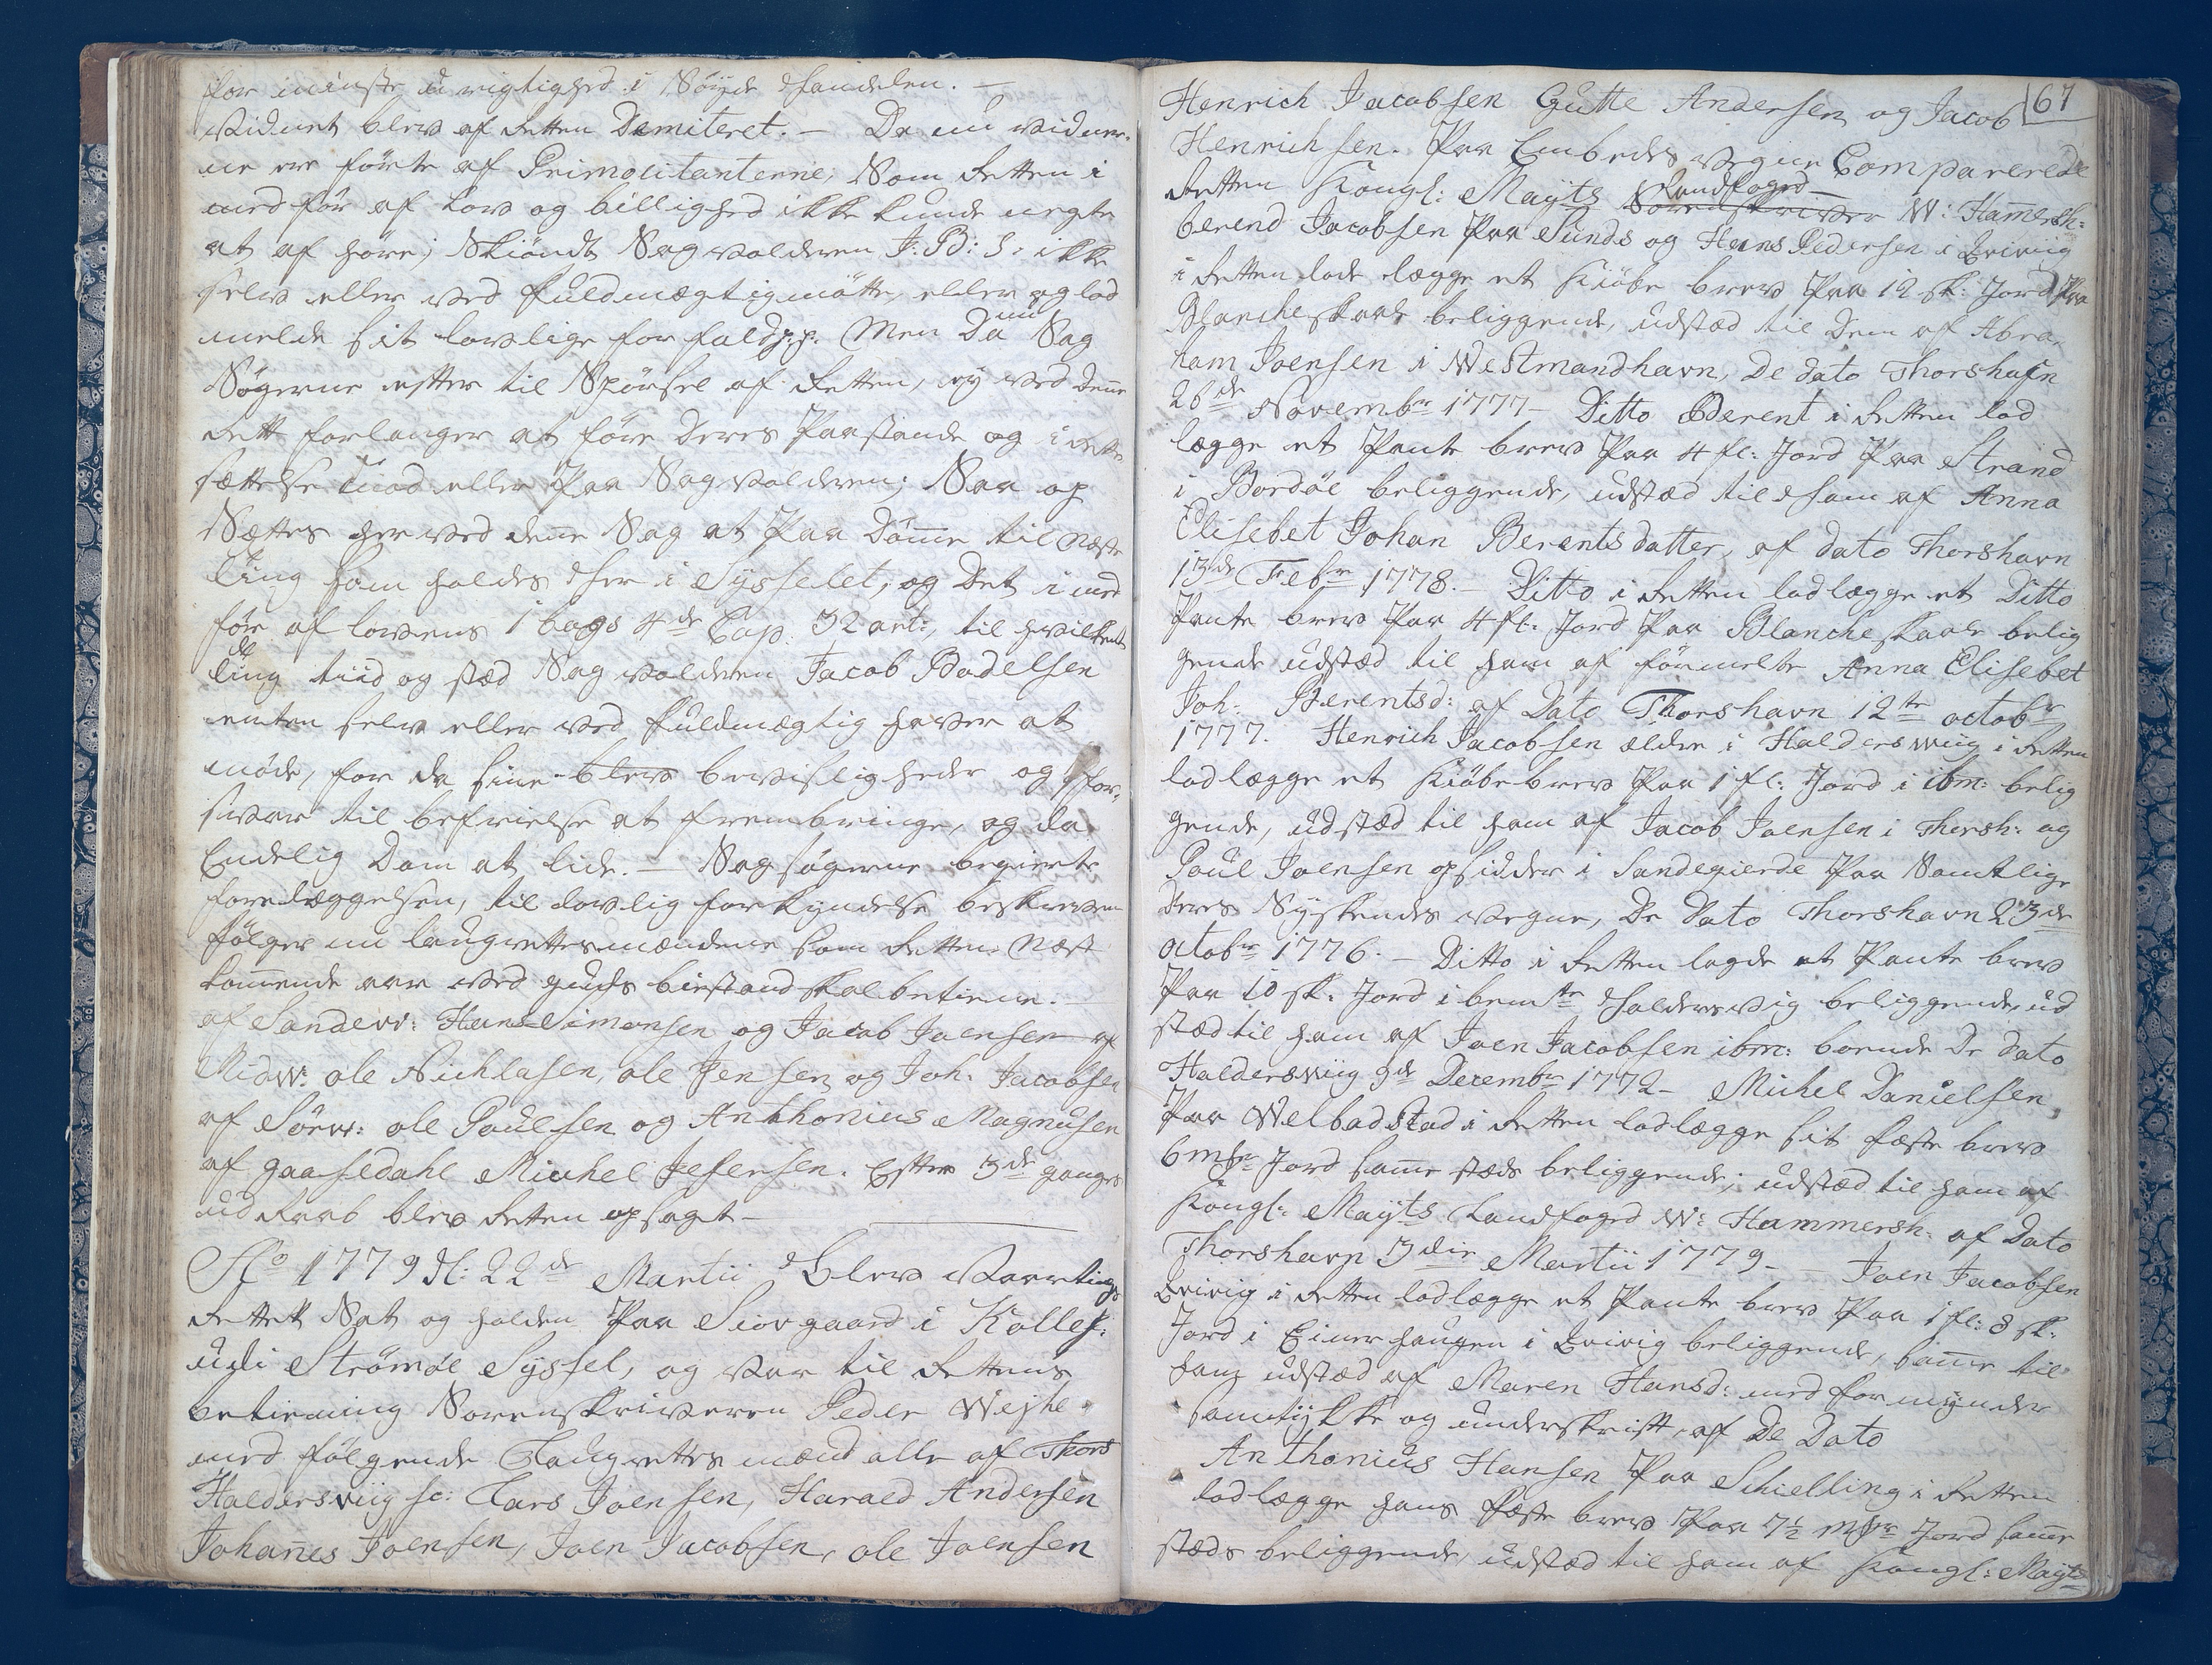 for minste urigtighed i Nøyde handelen. —
Vidnet blev af Retten Demiteret. — Da nu vidner-
ne ere førte af Primocitanterne, Som Retten i
medfør af Lov og billighed ikke kunde negte
at af høre; Skiøndt Sagvolderen J: B: S: ikke
selv eller ved fuldmægtig møtte, eller og lod
melde sit lovlige forfald p.p. Men Da nu Sag
Søgerne efter til Spørsel af Retten, ey ved denne
Rett forlanger at føre Deres Paastande og i Rette
sættelse imod eller Paa Sagvolderen; Saa op
Sættes her ved denne Sag at Paa Dømme til næste
Ting som holdes her i Sysselet, og Det i med
før af Lovens 1 bogs 4de Cap. 32 art:, til hvilket
Ting tiid og stæd Sagvolderen Jacob Bodelsen
enten selv eller ved fuldmægtig haver at
møde, for da sine blev bevisligheder og for-
svar til befrielse at frembringe, og da
Endelig Dom at lide. — Sagsøgerne begierte
forelæggelsen, til lovlig forkyndelse beskreven
følger nu laugrettesmændene som Retten næst
kommende aar ved guds bistand skal betiene. —
af Sandev: Hans Simonsen og Jacob Joensen af
Midv: ole Nichlasen, ole Jensen og Joh: Jacobsen
af Sörv: ole Poulsen og Anthonius Magnusen
af gaasedahl Michel Jesersen. Efter 3de ganges
udraab blev Retten opsagt —
Ao 1779 d: 22de Martii Blev Vaarting
Rettet Sat og holden Paa Siovgaard i Kollef:
udi Strömöe Syssel, og var til Rettens
betiening Sorenskriveren Peder Wejhe
med følgende Laugrettes mænd alle af Thors
Haldersviig sc: Lars Joensen, Harald Andersen
Johannes Joensen, Joen Jacobsen, ole Joensen
67
Henrich Jacobsen Gutte Andersen og Jacob
Henrichsen. Paa Embeds vegne Comparerede
Retten Kongl: Mayts Sorenskriver Landfoged W: Hamersh:
berend Jacobsen Paa Sunds og Hans Pedersen i Qvivig
i Retten lode lægge et Kiøbe brev Paa 12 sk: Jord Paa
Blancheskaale beliggende, udstæd til Dem af Abra-
ham Joensen i Westmandhavn, De dato Thorshafn
26de Novembr 1777 — Ditto Berent i Retten lod
lægge et Pante brev Paa 4 fl: Jord Paa Strand
i Bordöe beliggende, udstæd til ham af Anna
Elisebet Johan Berentsdatter, af dato Thorshavn
13de Febr 1778. — Ditto i Retten lod lægge et Ditto
Pante brev Paa 4 fl. Jord Paa Blancheskaale belig
gende udstæd til ham af førmelte Anna Elisebet
Joh: Berentsd: af Dato Thorshavn 12te octobr
1777. Henrich Jacobsen ældre i Haldersviig i Retten
lod lægge et Kiøbebrev Paa 1 fl: Jord i ibm: belig
gende, udstæd til ham af Jacob Joensen i Thorsh: og
Poul Joensen opsidder i Sandegierde Paa Samtlige
Deres Syskendes vegne, De Dato Thorshavn 23de
octobr 1776. — Ditto i Retten lagde et Pante brev
Paa 10 sk: Jord i bemte Haldersvig beliggende, ud
stæd til ham af Joen Jacobsen ibm: boende De dato
Haldersviig 9de Decembr 1772 — Michel Danielsen
Paa Welbadstad i Retten lod lægge sit fæste brev
6 mkr Jord samme stæds beliggende; udstæd til ham af
Kongl: Mayts Landfoged W: Hammersh: af Dato
Thorshavn 3die Martii 1779 — Joen Jacobsen
Qvivig i Retten lod lægge et Pante brev Paa 1 fl: 8 sk:
Jord i Einerhaugen i Qvivig beliggende, samme til
ham udstæd af Maren Hansd: med formynder
samtykke og underskrift, af De Dato
Anthonius Hansen Paa Schielling i Retten
lod lægge hans fæste brev Paa 7½ mkr Jord samme
stæds beliggende, udstæd til ham af Kongl: Mayts